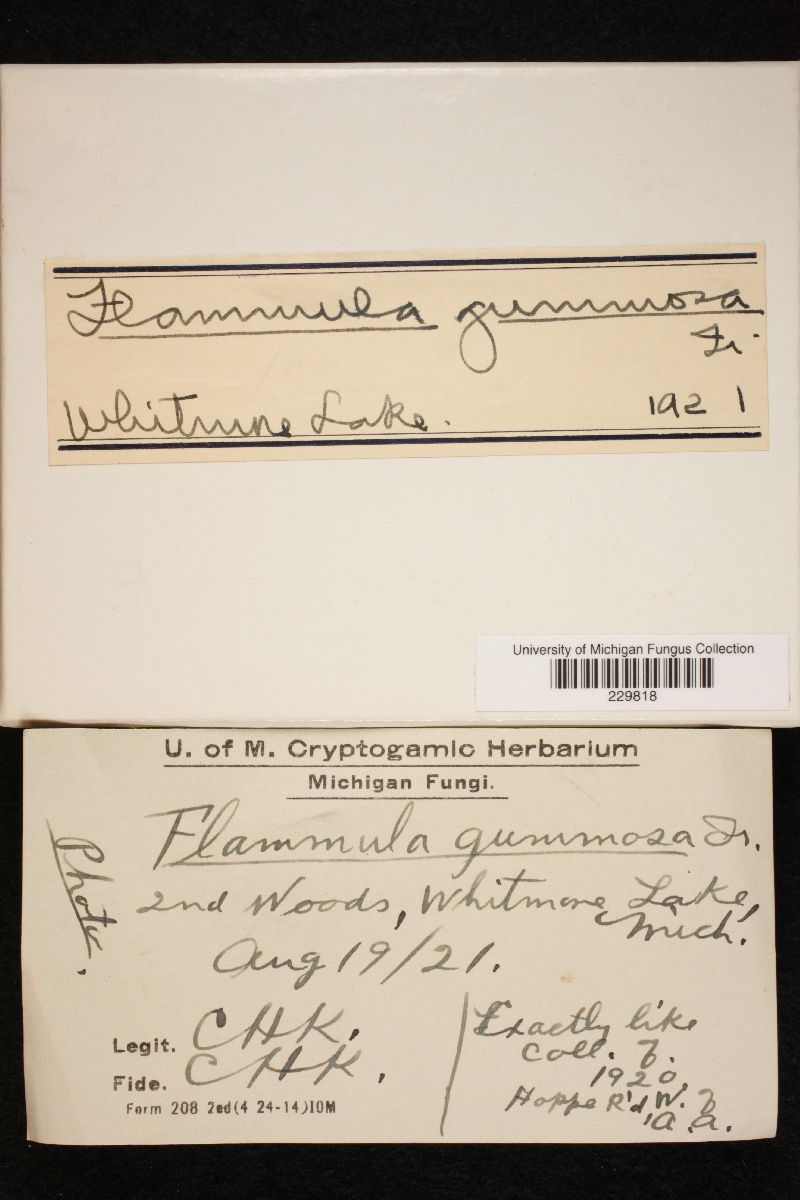 Flammula gummosa
Fr.
Whitmore Lake. 1921
University of Michigan Fungus Collection
229818
U. of M. Cryptogamic Herbarium
Michigan Fungi.
Photo.
Flammula gummosa Fr.
2nd Woods, Whitmore Lake,
Mich.
Aug 19/21.
Legit. CHK.
Fide. CHK.
Form 208 2ed(4 24-14)10M
Exactly like
Coll. of
1920,
Hoppe R'd W. of
A.A.